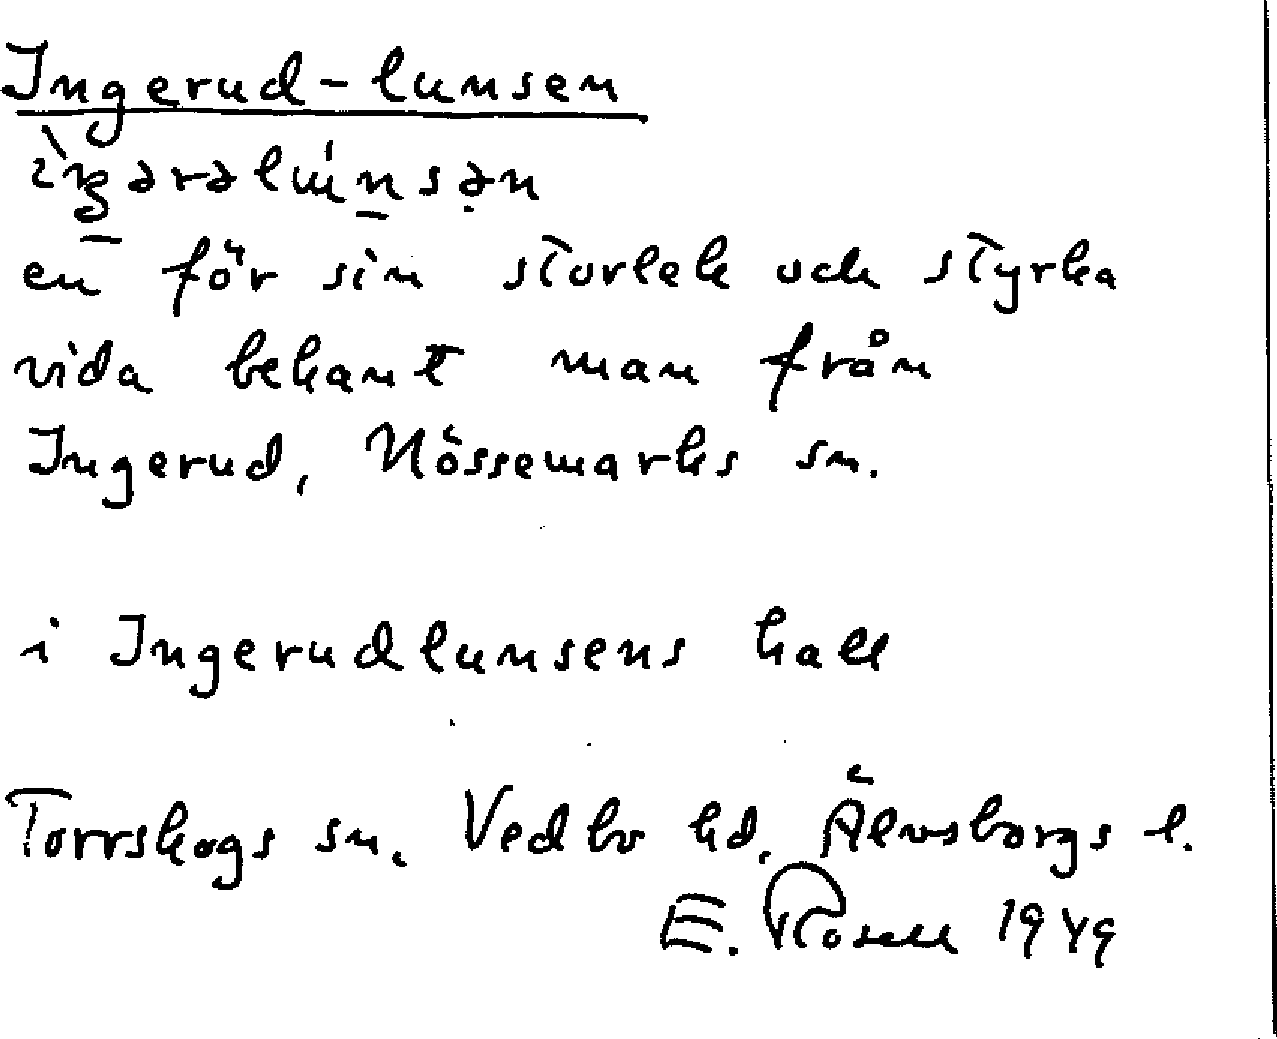 Ingerud-lunsen
en för sin storlek och styrka
vida bekant man från
Ingerud, Nössemarks sn.
i Ingerudlunsens hall
Torrskogs sn. Vedbo hd. Älvsborgs l.
E. Rosell 1949